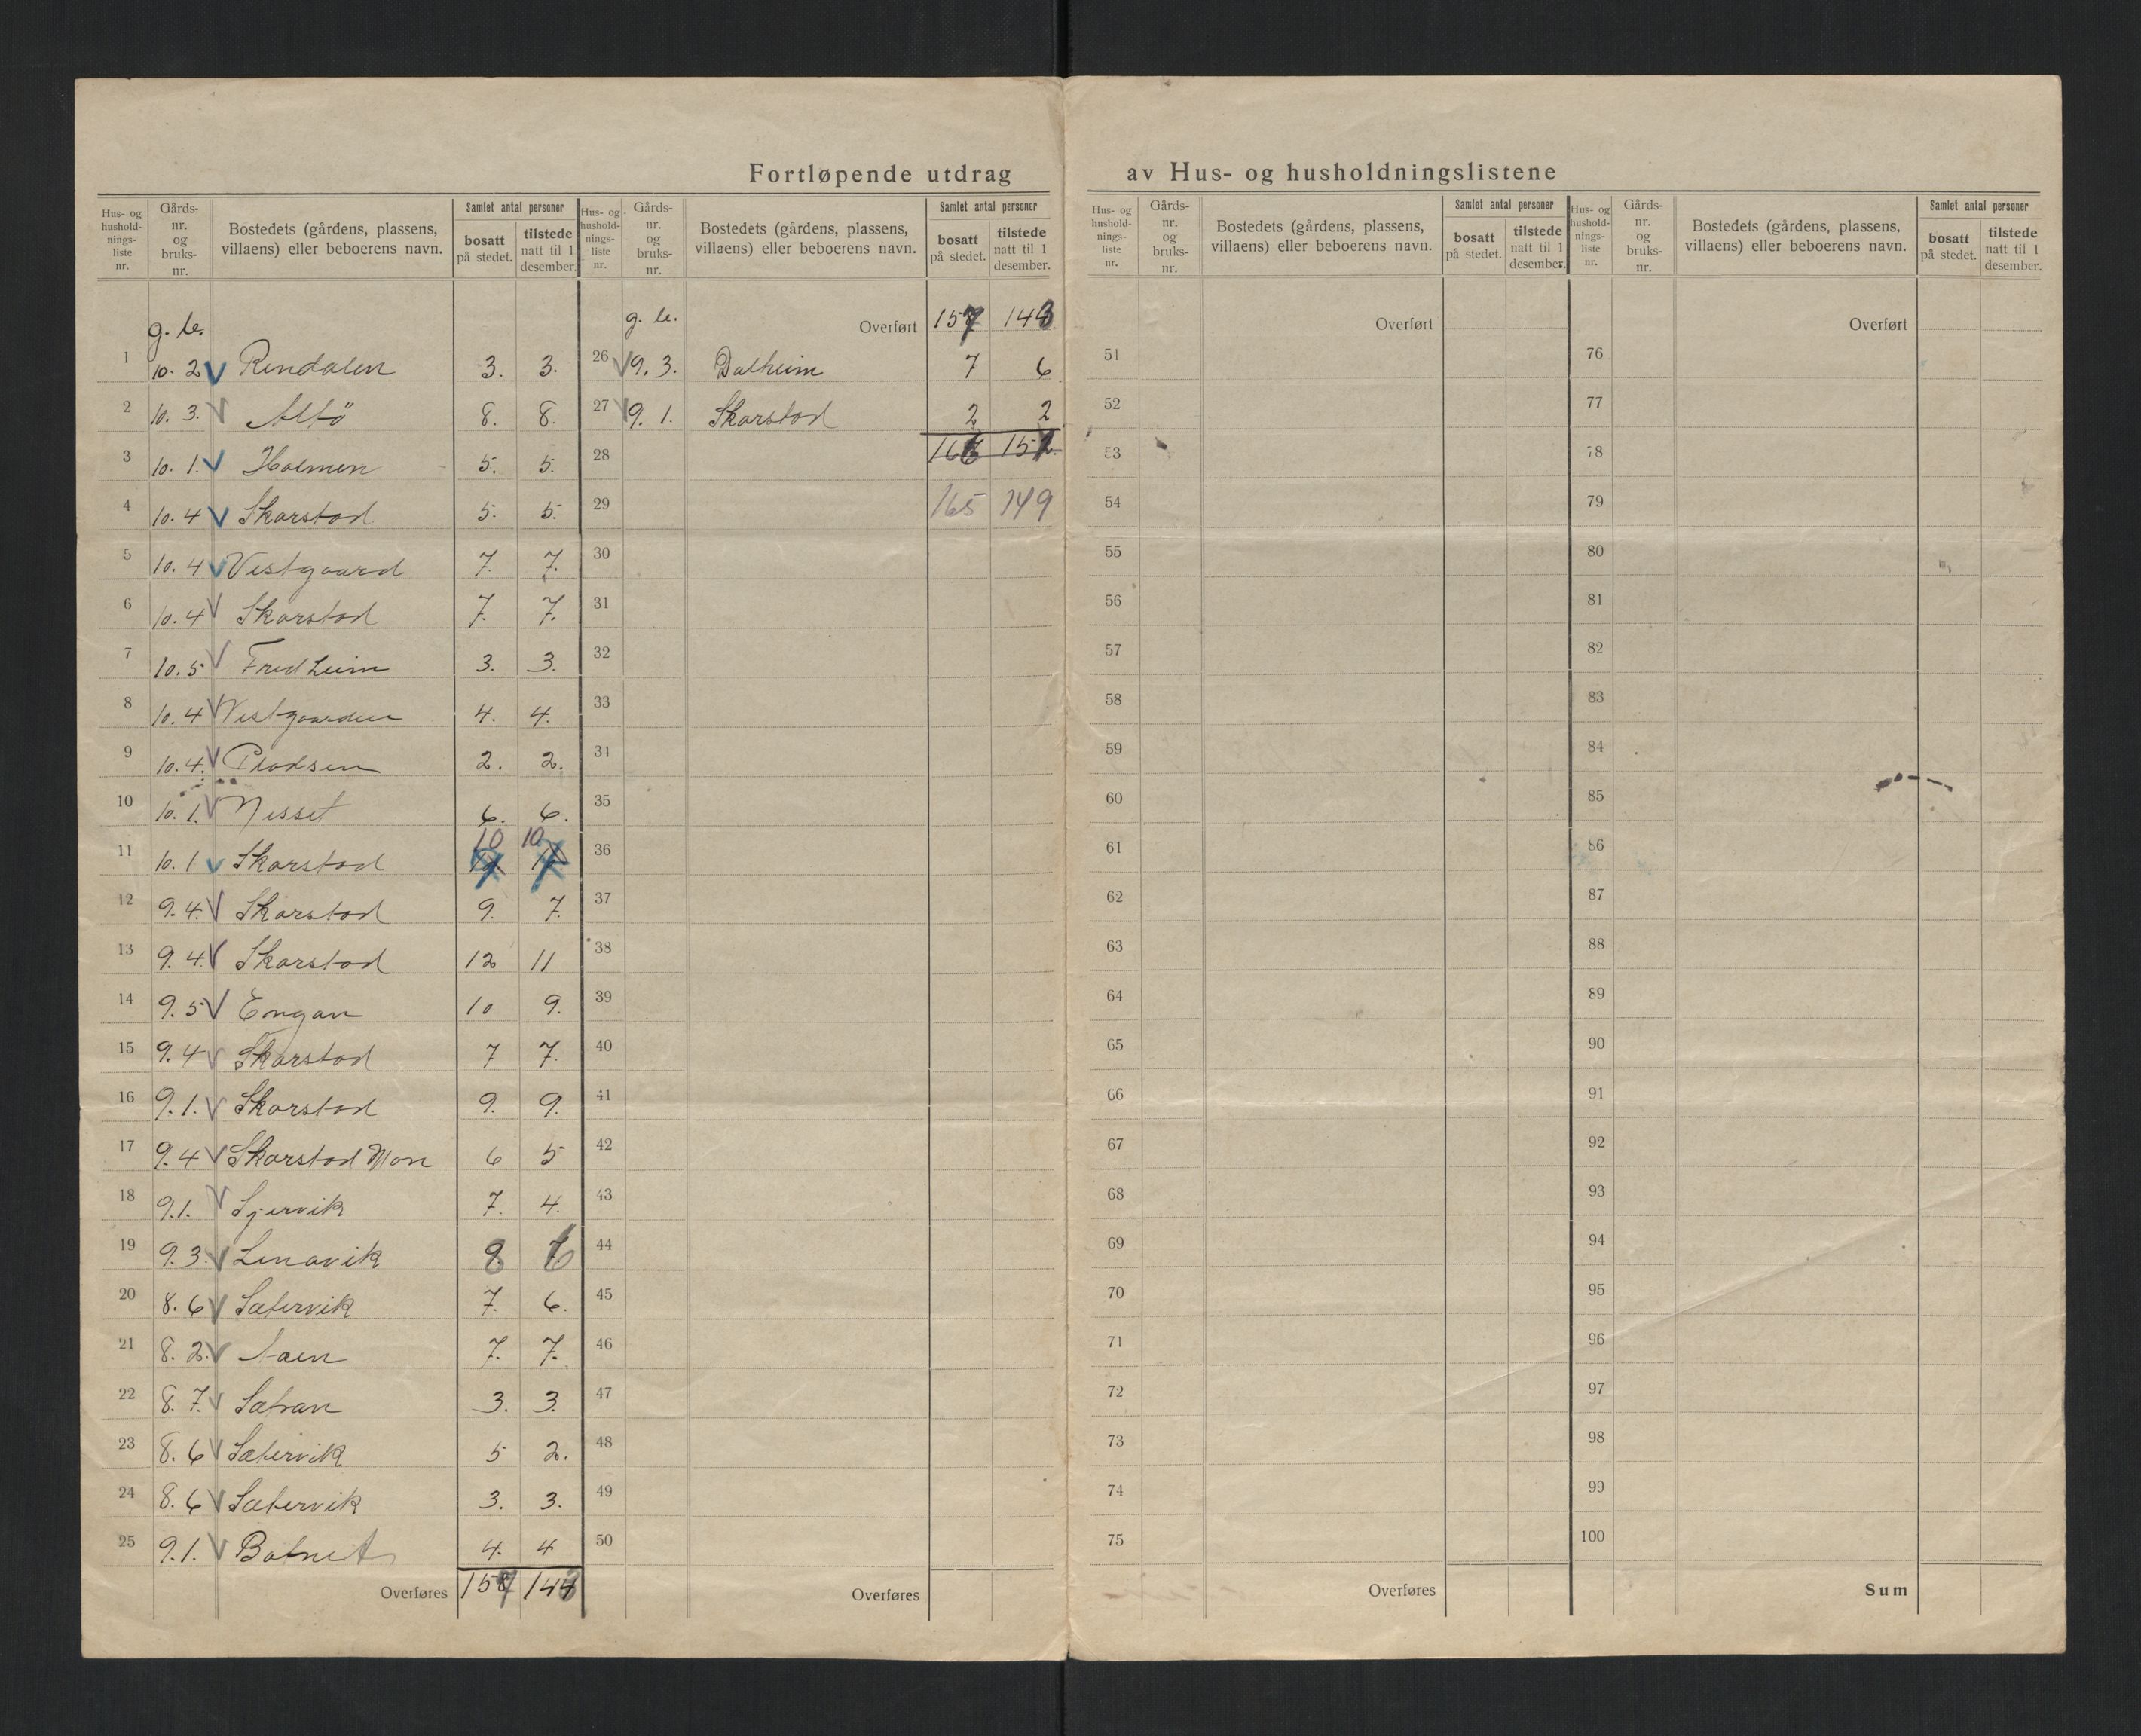 Fortløpende utdrag av Hus- og husholdningslistene
Hus- og hushold-nings-liste nr. Gårds-nr. og bruks-nr. Bostedets (gårdens, plassens, villaens) eller beboerens navn. Samlet antal personer bosatt på stedet. tilstede natt til 1 desember.
g. br.
1 10. 2 V Rendalen 3. 3.
2 10. 3. V Altö 8. 8.
3 10. 1. V Holmen 5. 5.
4 10. 4 V Skarstad 5. 5.
5 10. 4 V Vestgaard 7. 7.
6 10. 4 V Skarstad 7. 7.
7 10. 5 V Fredheim 3. 3.
8 10. 4 V Vestgaarden 4. 4.
9 10. 4. V 2. 2.
10 10. 1. V Nesset 6. 6.
11 10. 1 V Skarstad 10 10
12 9. 4. V Skarstad 9. 7.
13 9. 4. V Skarstad 12 11
14 9. 5 V Engan 10 9.
15 9. 4 V Skarstad 7 7.
16 9. 1. V Skarstad 9. 9.
17 9. 4 V Skarstad Mon 6 5
18 9. 1. V 7. 4.
19 9. 3. V Lenavik 8 6
20 8. 6 V Satervik 7. 6.
21 8. 2. V 7. 7.
22 8. 7. V Satran 3. 3.
23 8. 6 V Satervik 5 2.
24 8. 6 V Satervik 3. 3.
25 9. 1. V Botnet 4. 4
Overføres 157 143
Hus- og hushold-nings-liste nr. Gårds-nr. og bruks-nr. Bostedets (gårdens, plassens, villaens) eller beboerens navn. Samlet antal personer bosatt på stedet. tilstede natt til 1 desember.
g. br. Overført 157 143
26 V 9. 3. Dalheim 7 6
27 V 9. 1. Skarstad 2 2
28 166 151
29 165 149
30
31
32
33
34
35
36
37
38
39
40
41
42
43
44
45
46
47
48
49
50
Overføres
Hus- og hushold-nings-liste nr. Gårds-nr. og bruks-nr. Bostedets (gårdens, plassens, villaens) eller beboerens navn. Samlet antal personer bosatt på stedet. tilstede natt til 1 desember.
Overført
51
52
53
54
55
56
57
58
59
60
61
62
63
64
65
66
67
68
69
70
71
72
73
74
75
Overføres
Hus- og hushold-nings-liste nr. Gårds-nr. og bruks-nr. Bostedets (gårdens, plassens, villaens) eller beboerens navn. Samlet antal personer bosatt på stedet. tilstede natt til 1 desember.
Overført
76
77
78
79
80
81
82
83
84
85
86
87
88
89
90
91
92
93
94
95
96
97
98
99
100
Sum